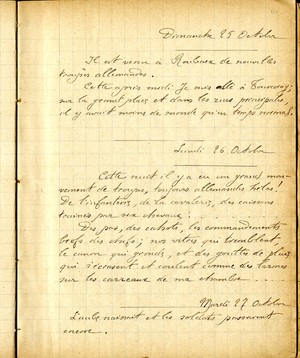 Dimanche 25 Octobre
Il est venu à Roubaix de nouvelles
troupes allemandes.
Cette après midi je suis allé à Tourcoing;
sur la grand place et dans les rues principales,
il y avait moins de monde qu'en temps normal.
Lundi 26 Octobre
Cette nuit il y a eu un grand mou-
vement de troupes, toujours allemandes hélas!
De l'infanterie, de la cavalerie, des caissons
trainés par six chevaux.
Des pas, des cahots, les commandements
brefs des chefs; nos vitres qui tremblent,
le canon qui gronde, et des gouttes de pluie
qui s'écrasent et coulent comme des larmes
sur les carreaux de ma chambre...
Mardi 27 Octobre
L'aube naissait et les soldats passaient
encore.